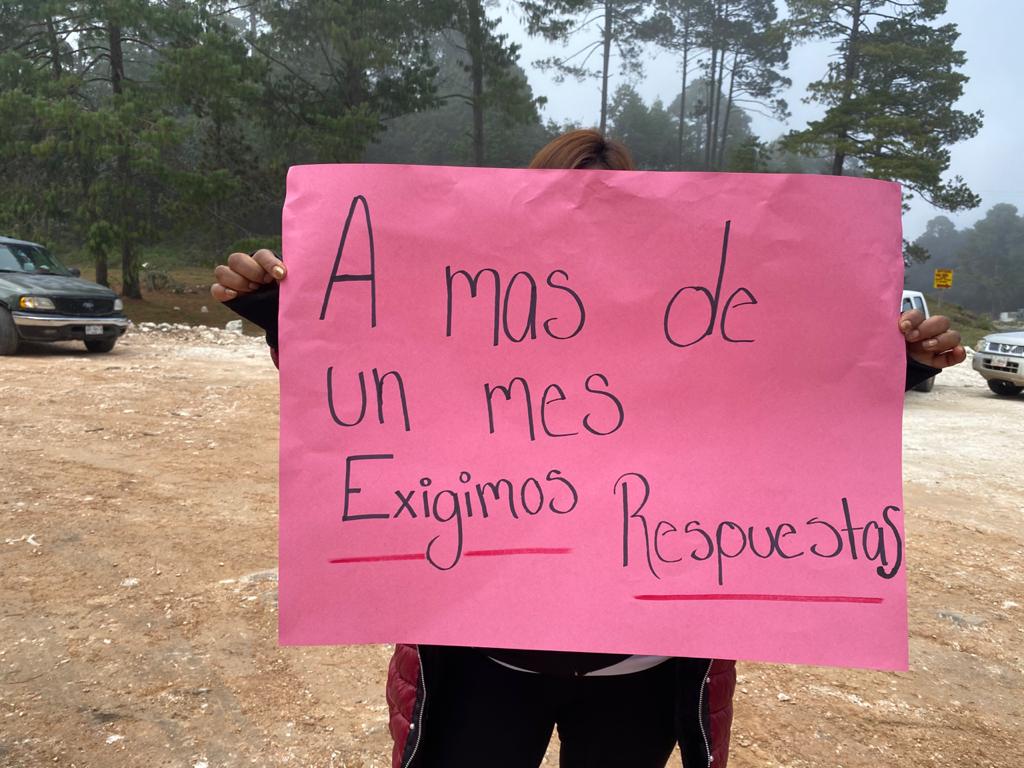 A mas de
un mes
Exigimos Respuestas